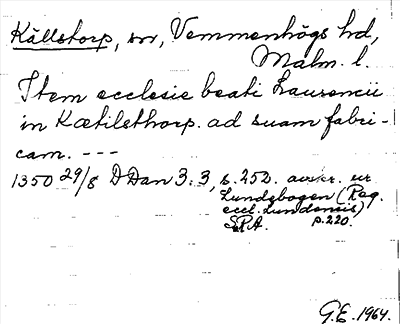 Källstorp, sn, Vemmenhögs hd,
Malm. l.
Item ecclesie beati Laurencii
in Kætilsthorp. ad suam fabri-
cam. ---
1350 29/8 DDan 3:3, s. 252. avskr. ur
Lundabogen (Reg.
eccl. Lundensis)
SRA. p. 220.
G.E. 1964.